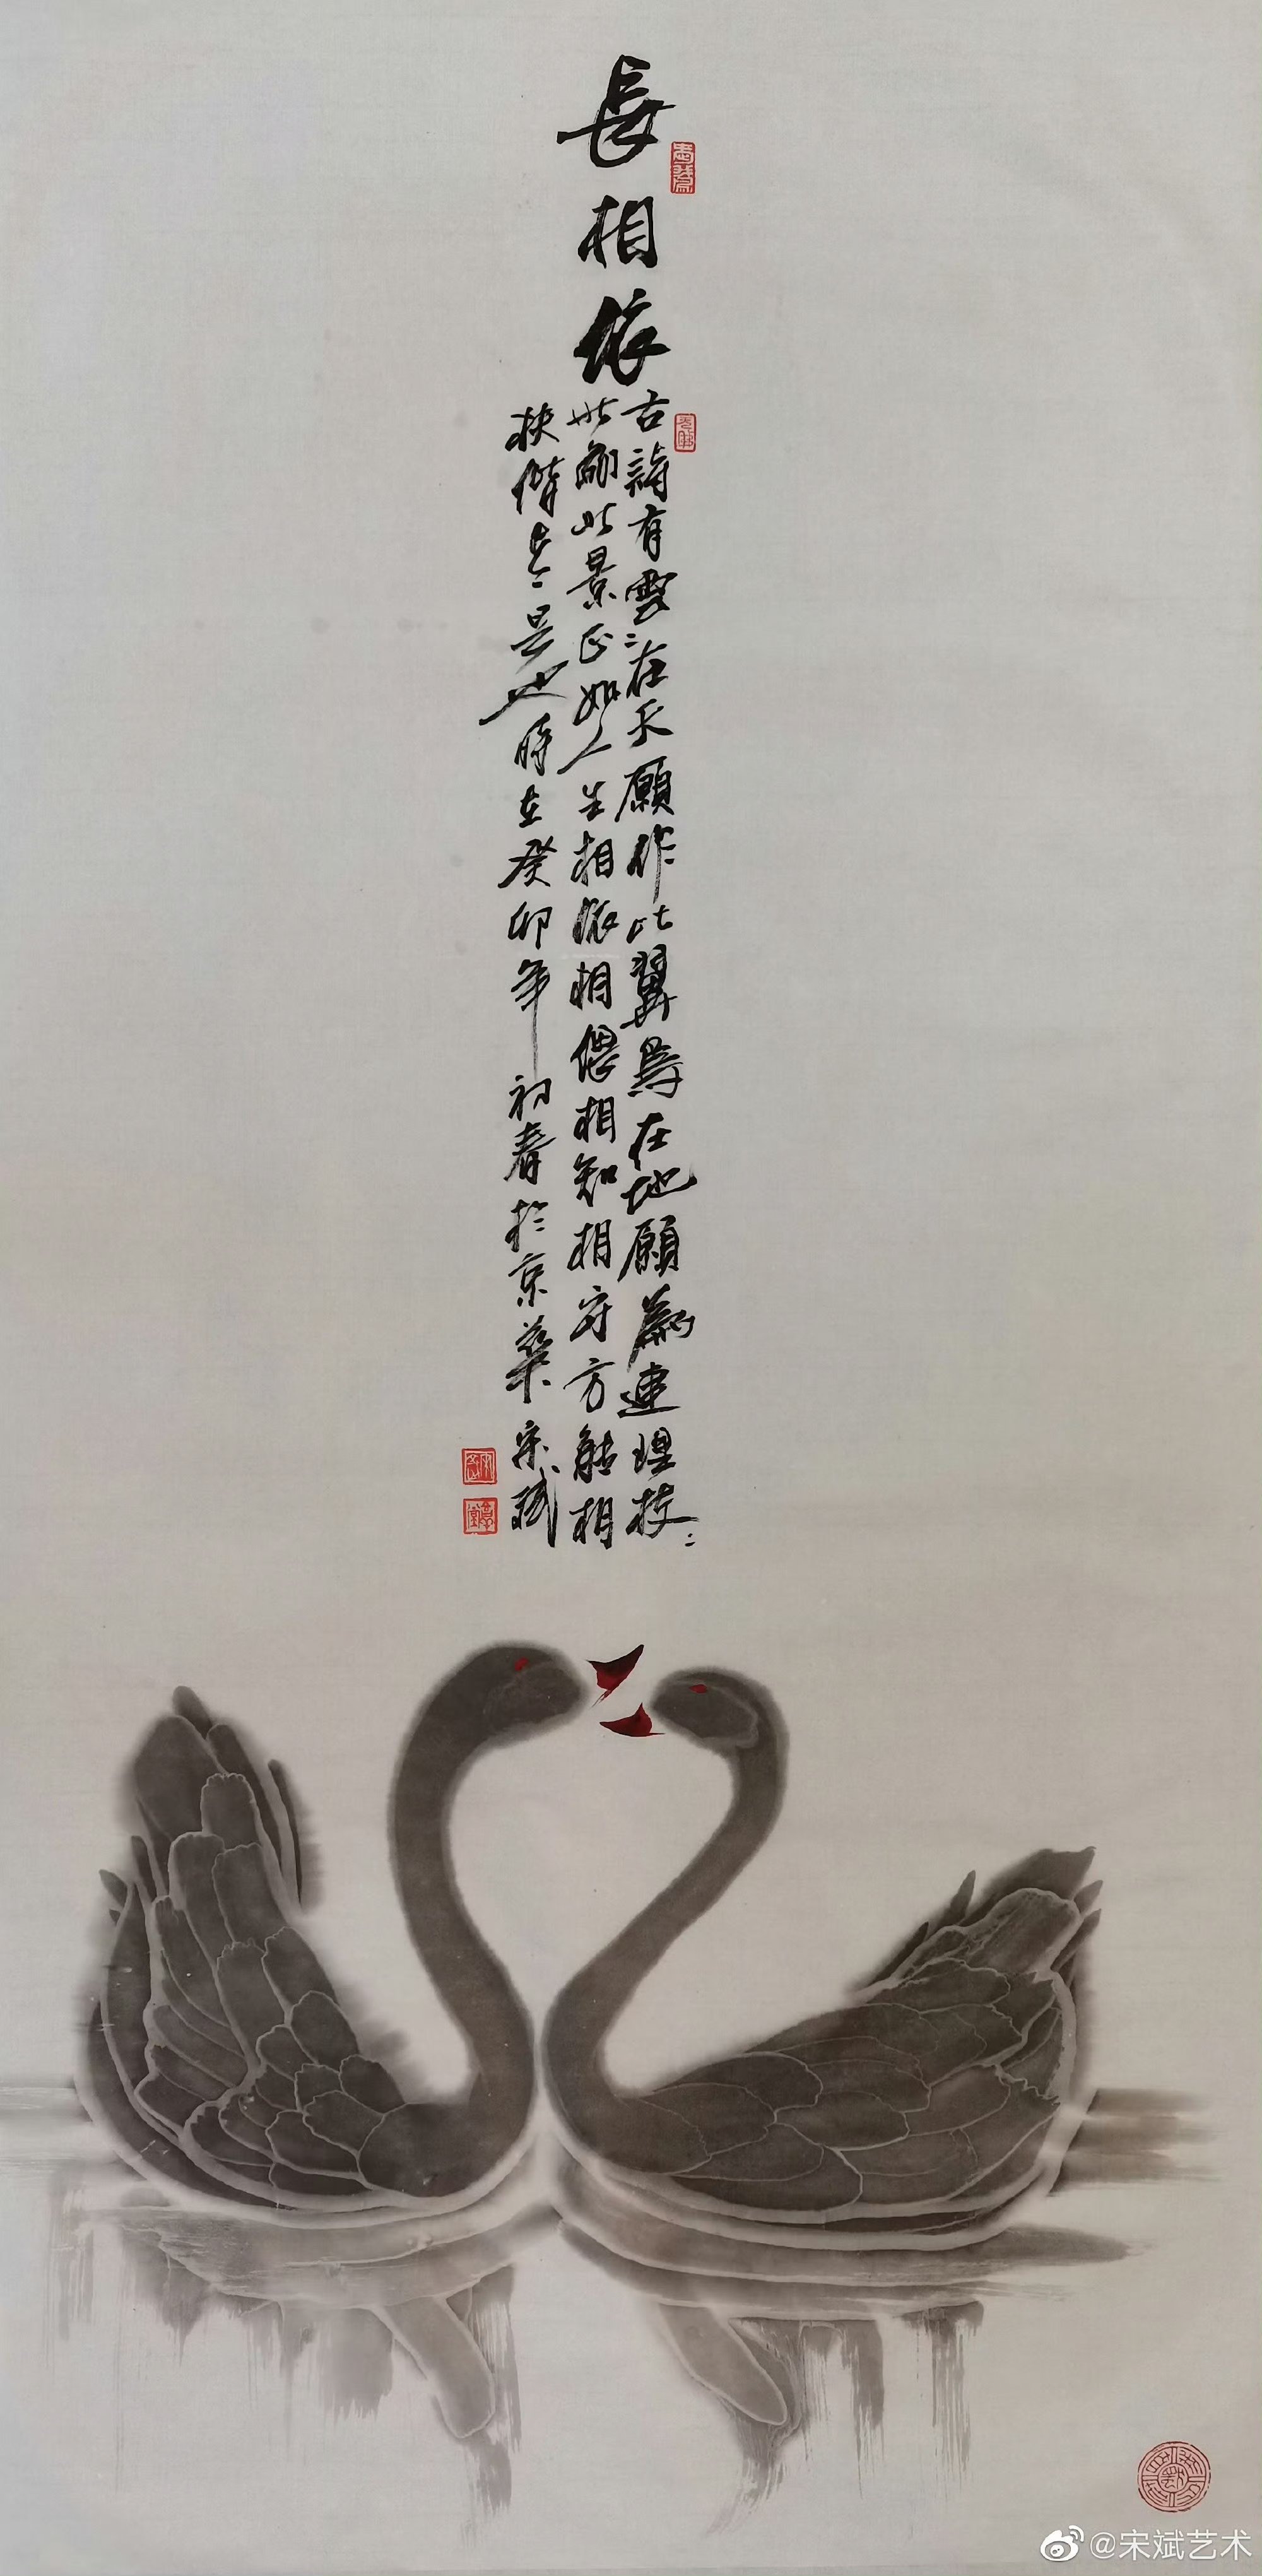 長相依
古詩有雲:在天願作比翼鳥在地願為連理枝:
此勵此景正如人生相依相偎相知相守方能相
扶偕老是也時在癸卯年初春於京華宋斌
@宋斌艺术